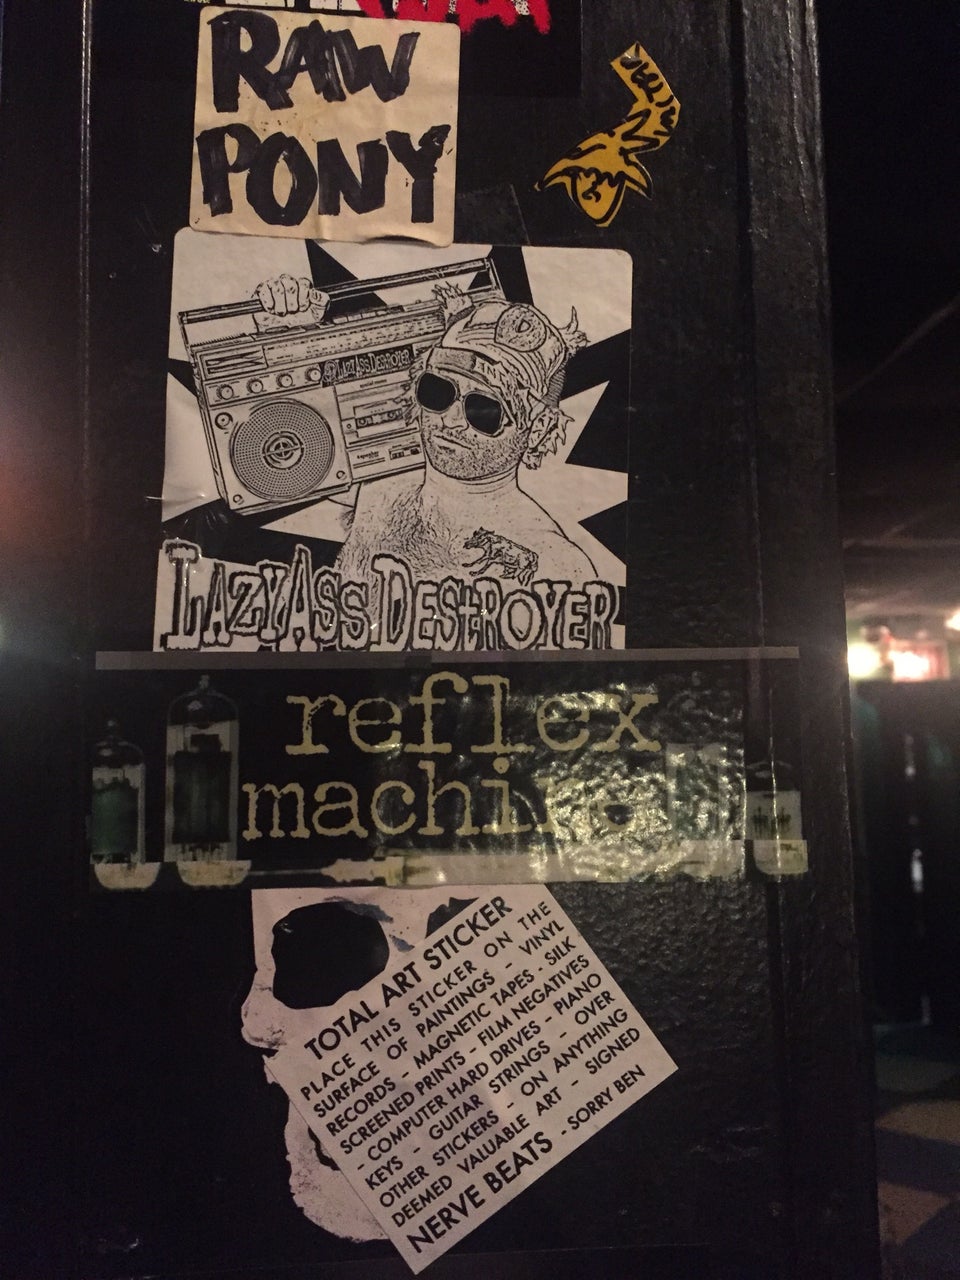 RAW
PONY
LAZYASS DESTROYER
LAZYASS DESTROYER
reflex
machine
TOTAL ART STICKER
PLACE THIS STICKER ON THE
SURFACE OF PAINTINGS - VINYL
RECORDS - MAGNETIC TAPES - SILK
SCREENED PRINTS - FILM NEGATIVES
- COMPUTER HARD DRIVES - PIANO
KEYS - GUITAR STRINGS - OVER
OTHER STICKERS - ON ANYTHING
DEEMED VALUABLE ART - SIGNED
NERVE BEATS - SORRY BEN